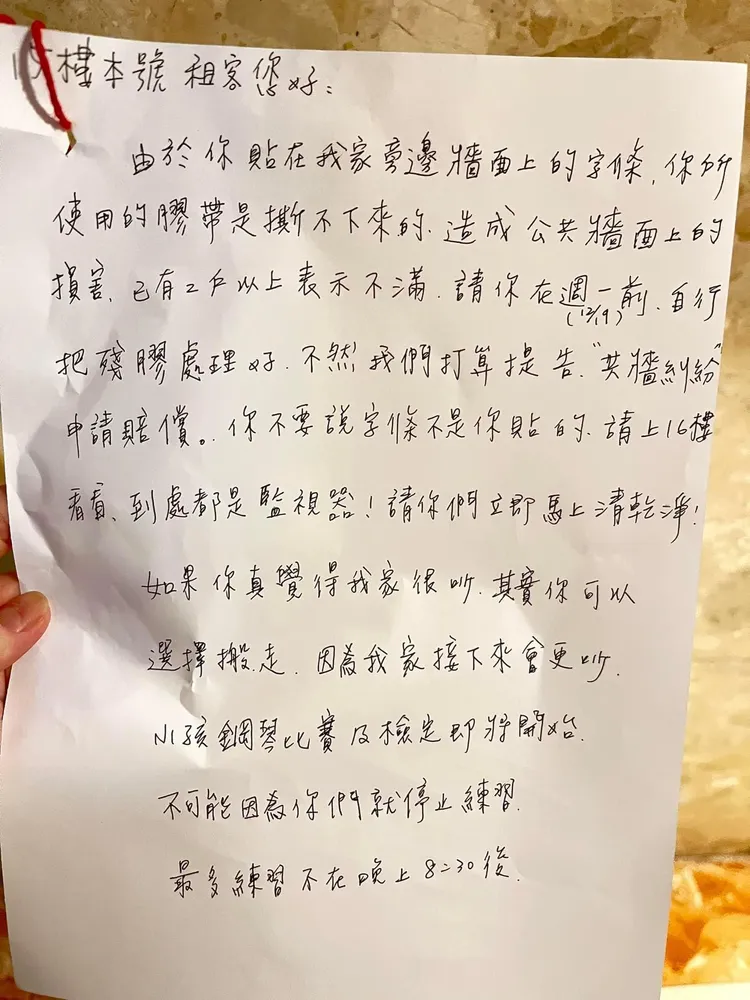 15樓本號 租客您好：
由於你貼在我家旁邊牆面上的字條，你所
使用的膠帶是撕不下來的、造成公共牆面上的
損害、已有2戶以上表示不滿、請你在週一前、自行
(12/19)
把殘膠處理好、不然我們打算提告、"共牆糾紛"
申請賠償。你不要說字條不是你貼的、請上16樓
看看、到處都是監視器！請你們立即馬上清乾淨！
如果你真覺得我家很吵、其實你可以
選擇搬走、因為我家接下來會更吵、
小孩鋼琴比賽及檢定即將開始、
不可能因為你們就停止練習、
最多練習不在晚上8:30後、